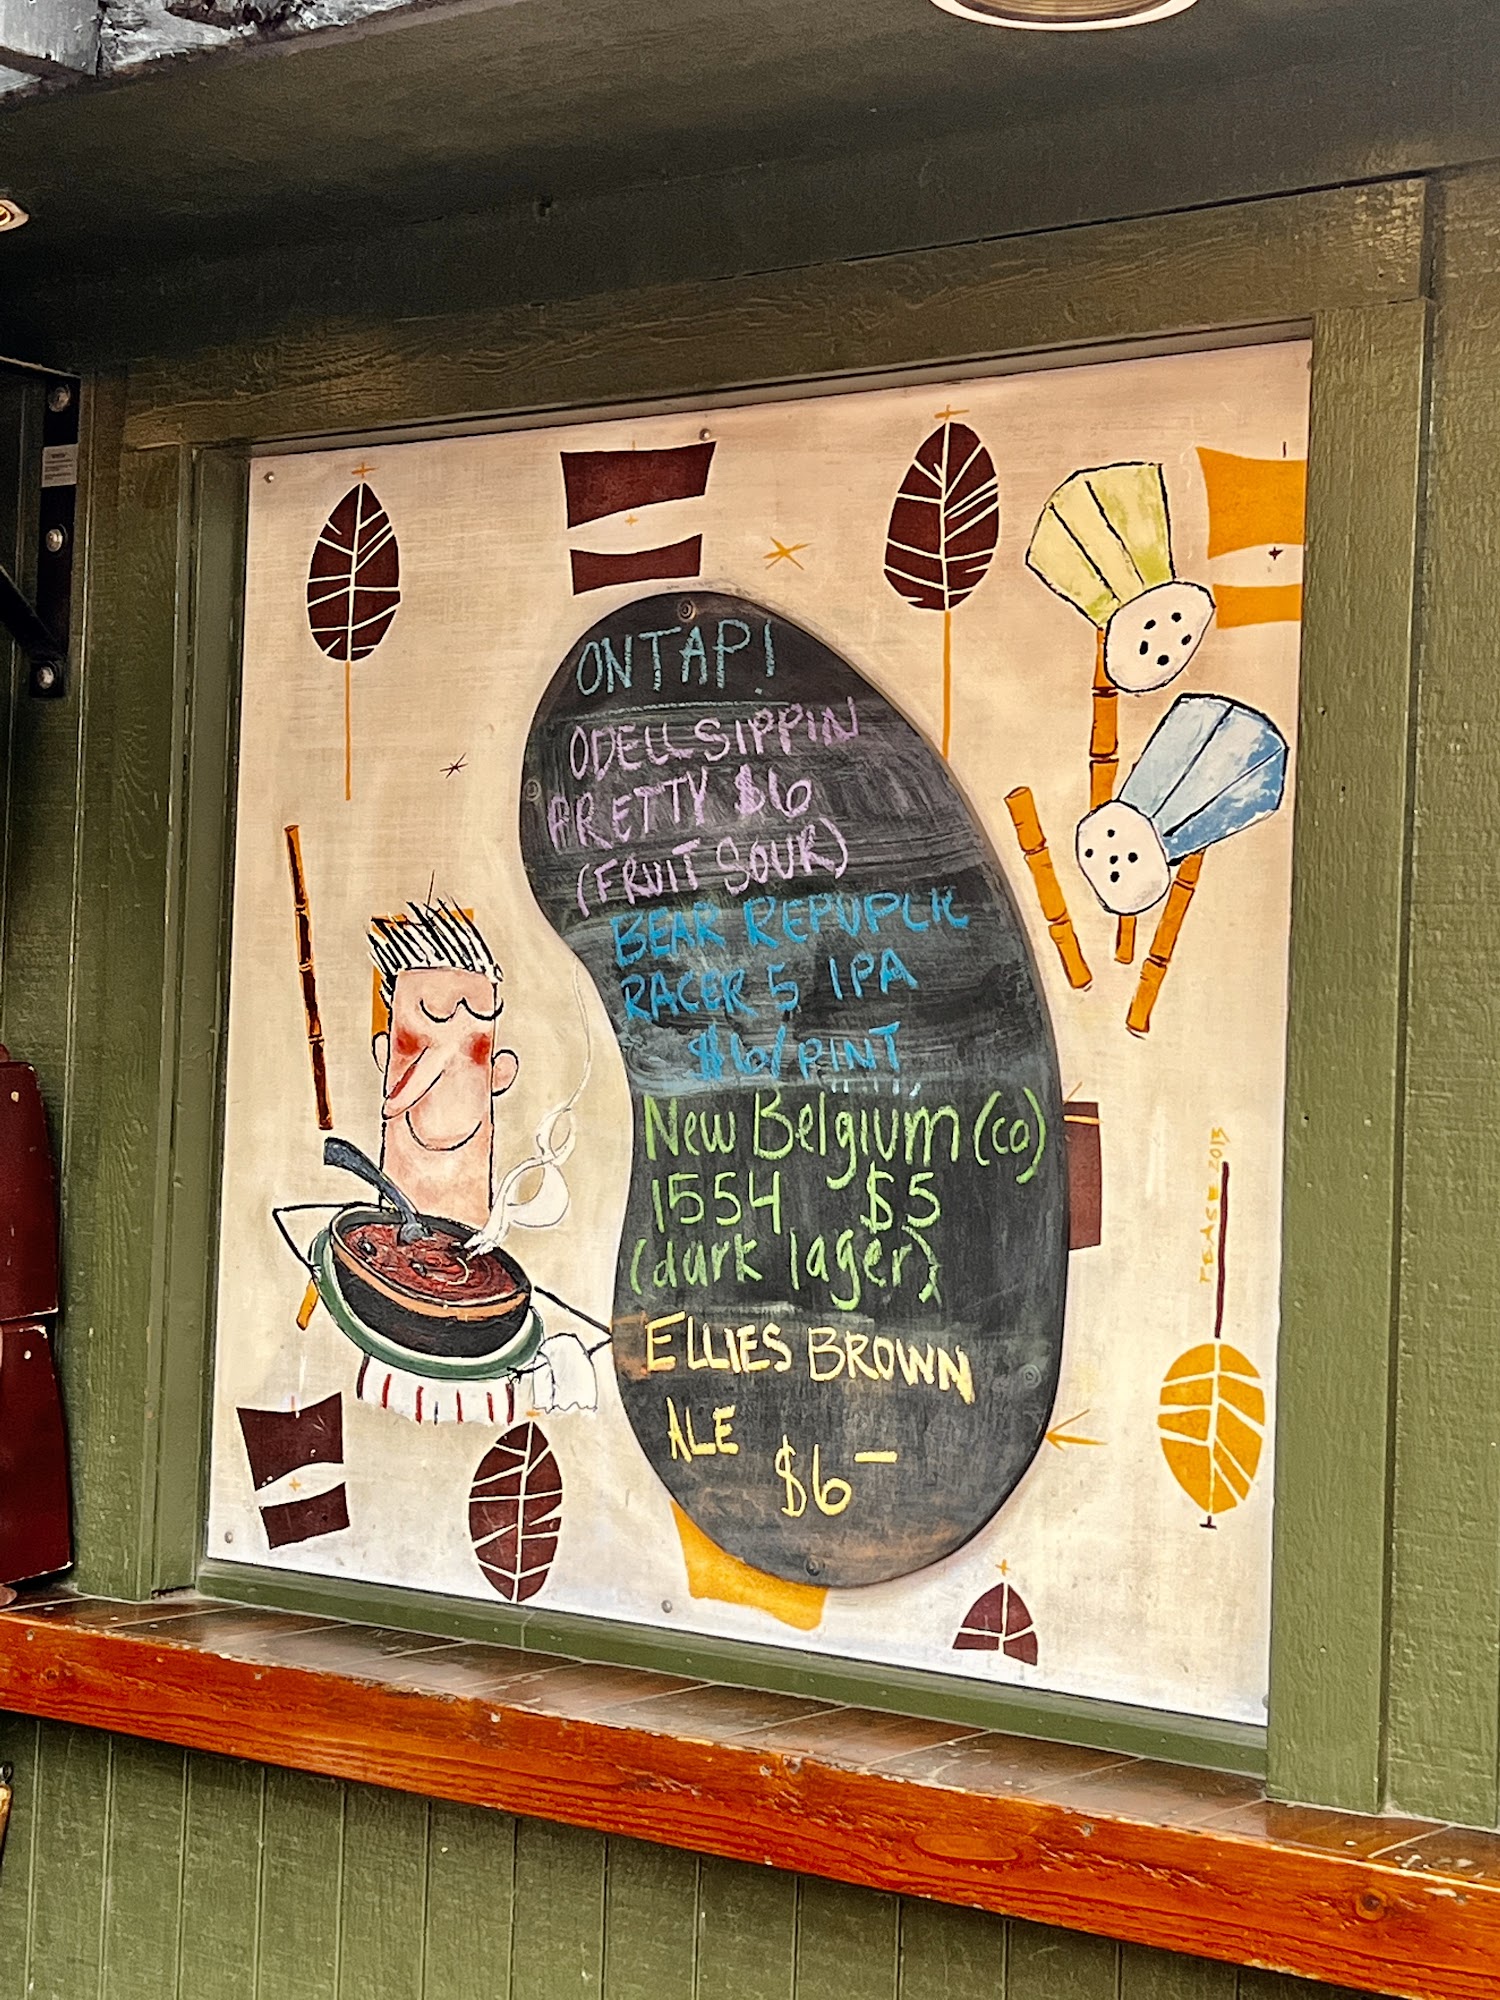 ON TAP!
ODELL SIPPIN
PRETTY $6
(FRUIT SOUR)
BEAR REPUPLIC
RACER 5 IPA
$6/PINT
New Belgium (CO)
1554 $5
(dark lager)
ELLIES BROWN
ALE
$6-
PEASE 2013